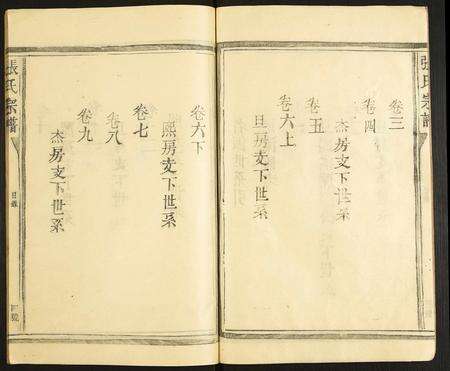 張氏宗譜
卷三
卷四
杰房支下世系
卷五
卷六上
旦房支下世系
卷六下
熙房支下世系
卷七
卷八
卷九
杰房支下世系
張氏宗譜
目錄